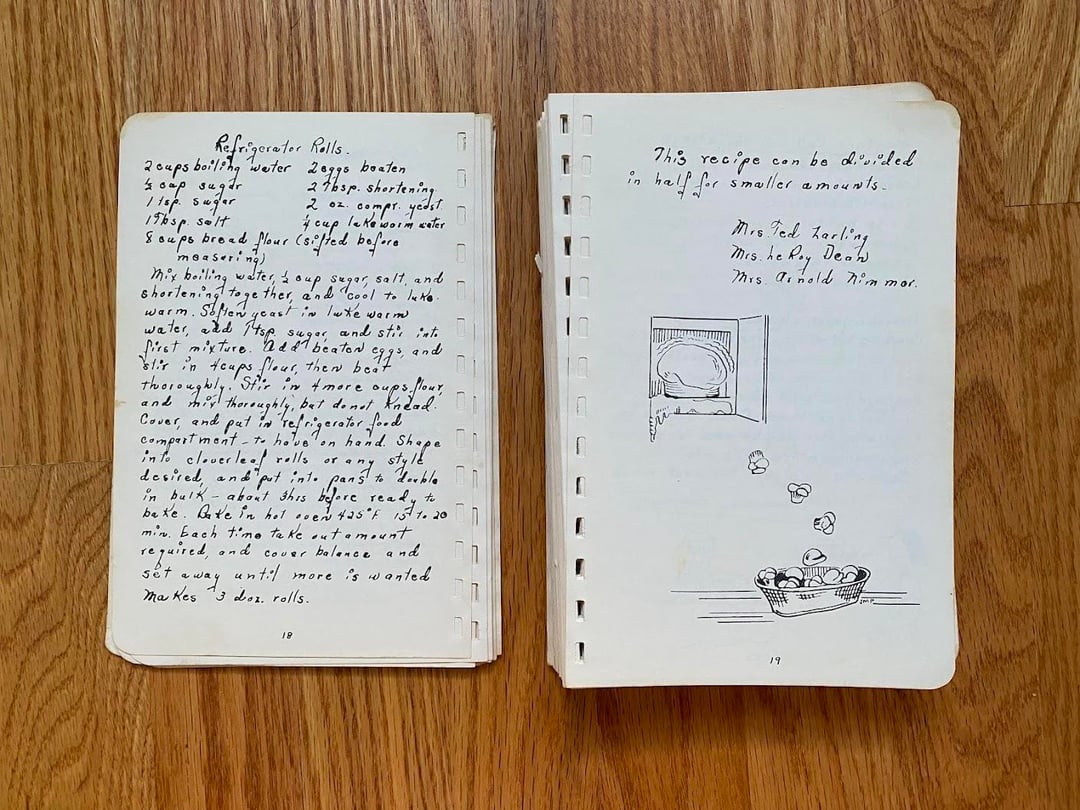 Refrigerator Rolls.
2 cups boiling water 2 eggs beaten
½ cup sugar 2 Tbsp. shortening
1 tsp. sugar 2 oz. compr. yeast
1 Tbsp. salt ¼ cup lukeworm water
8 cups bread flour (sifted before
measuring)
Mix boiling water, ½ cup sugar, salt, and
shortening together, and cool to luke-
warm. Soften yeast in luke warm
water, add 1 tsp. sugar, and stir into
first mixture. Add beaten eggs, and
stir in 4 cups flour, then beat
thoroughly. Stir in 4 more cups flour,
and mix thoroughly, but do not knead.
Cover, and put in refrigerator food
compartment - to have on hand. Shape
into cloverleaf rolls or any style
desired, and put into pans to double
in bulk - about 3hrs before ready to
bake. Bake in hot oven 425°F. 15 to 20
min. Each time take out amount
required, and cover balance and
set away until more is wanted
Makes 3 doz. rolls.
18
This recipe can be divided
in half for smaller amounts.
Mrs. Ted Larling
Mrs. Le Roy Dean
Mrs. Arnold Nimmer.
JMP
19